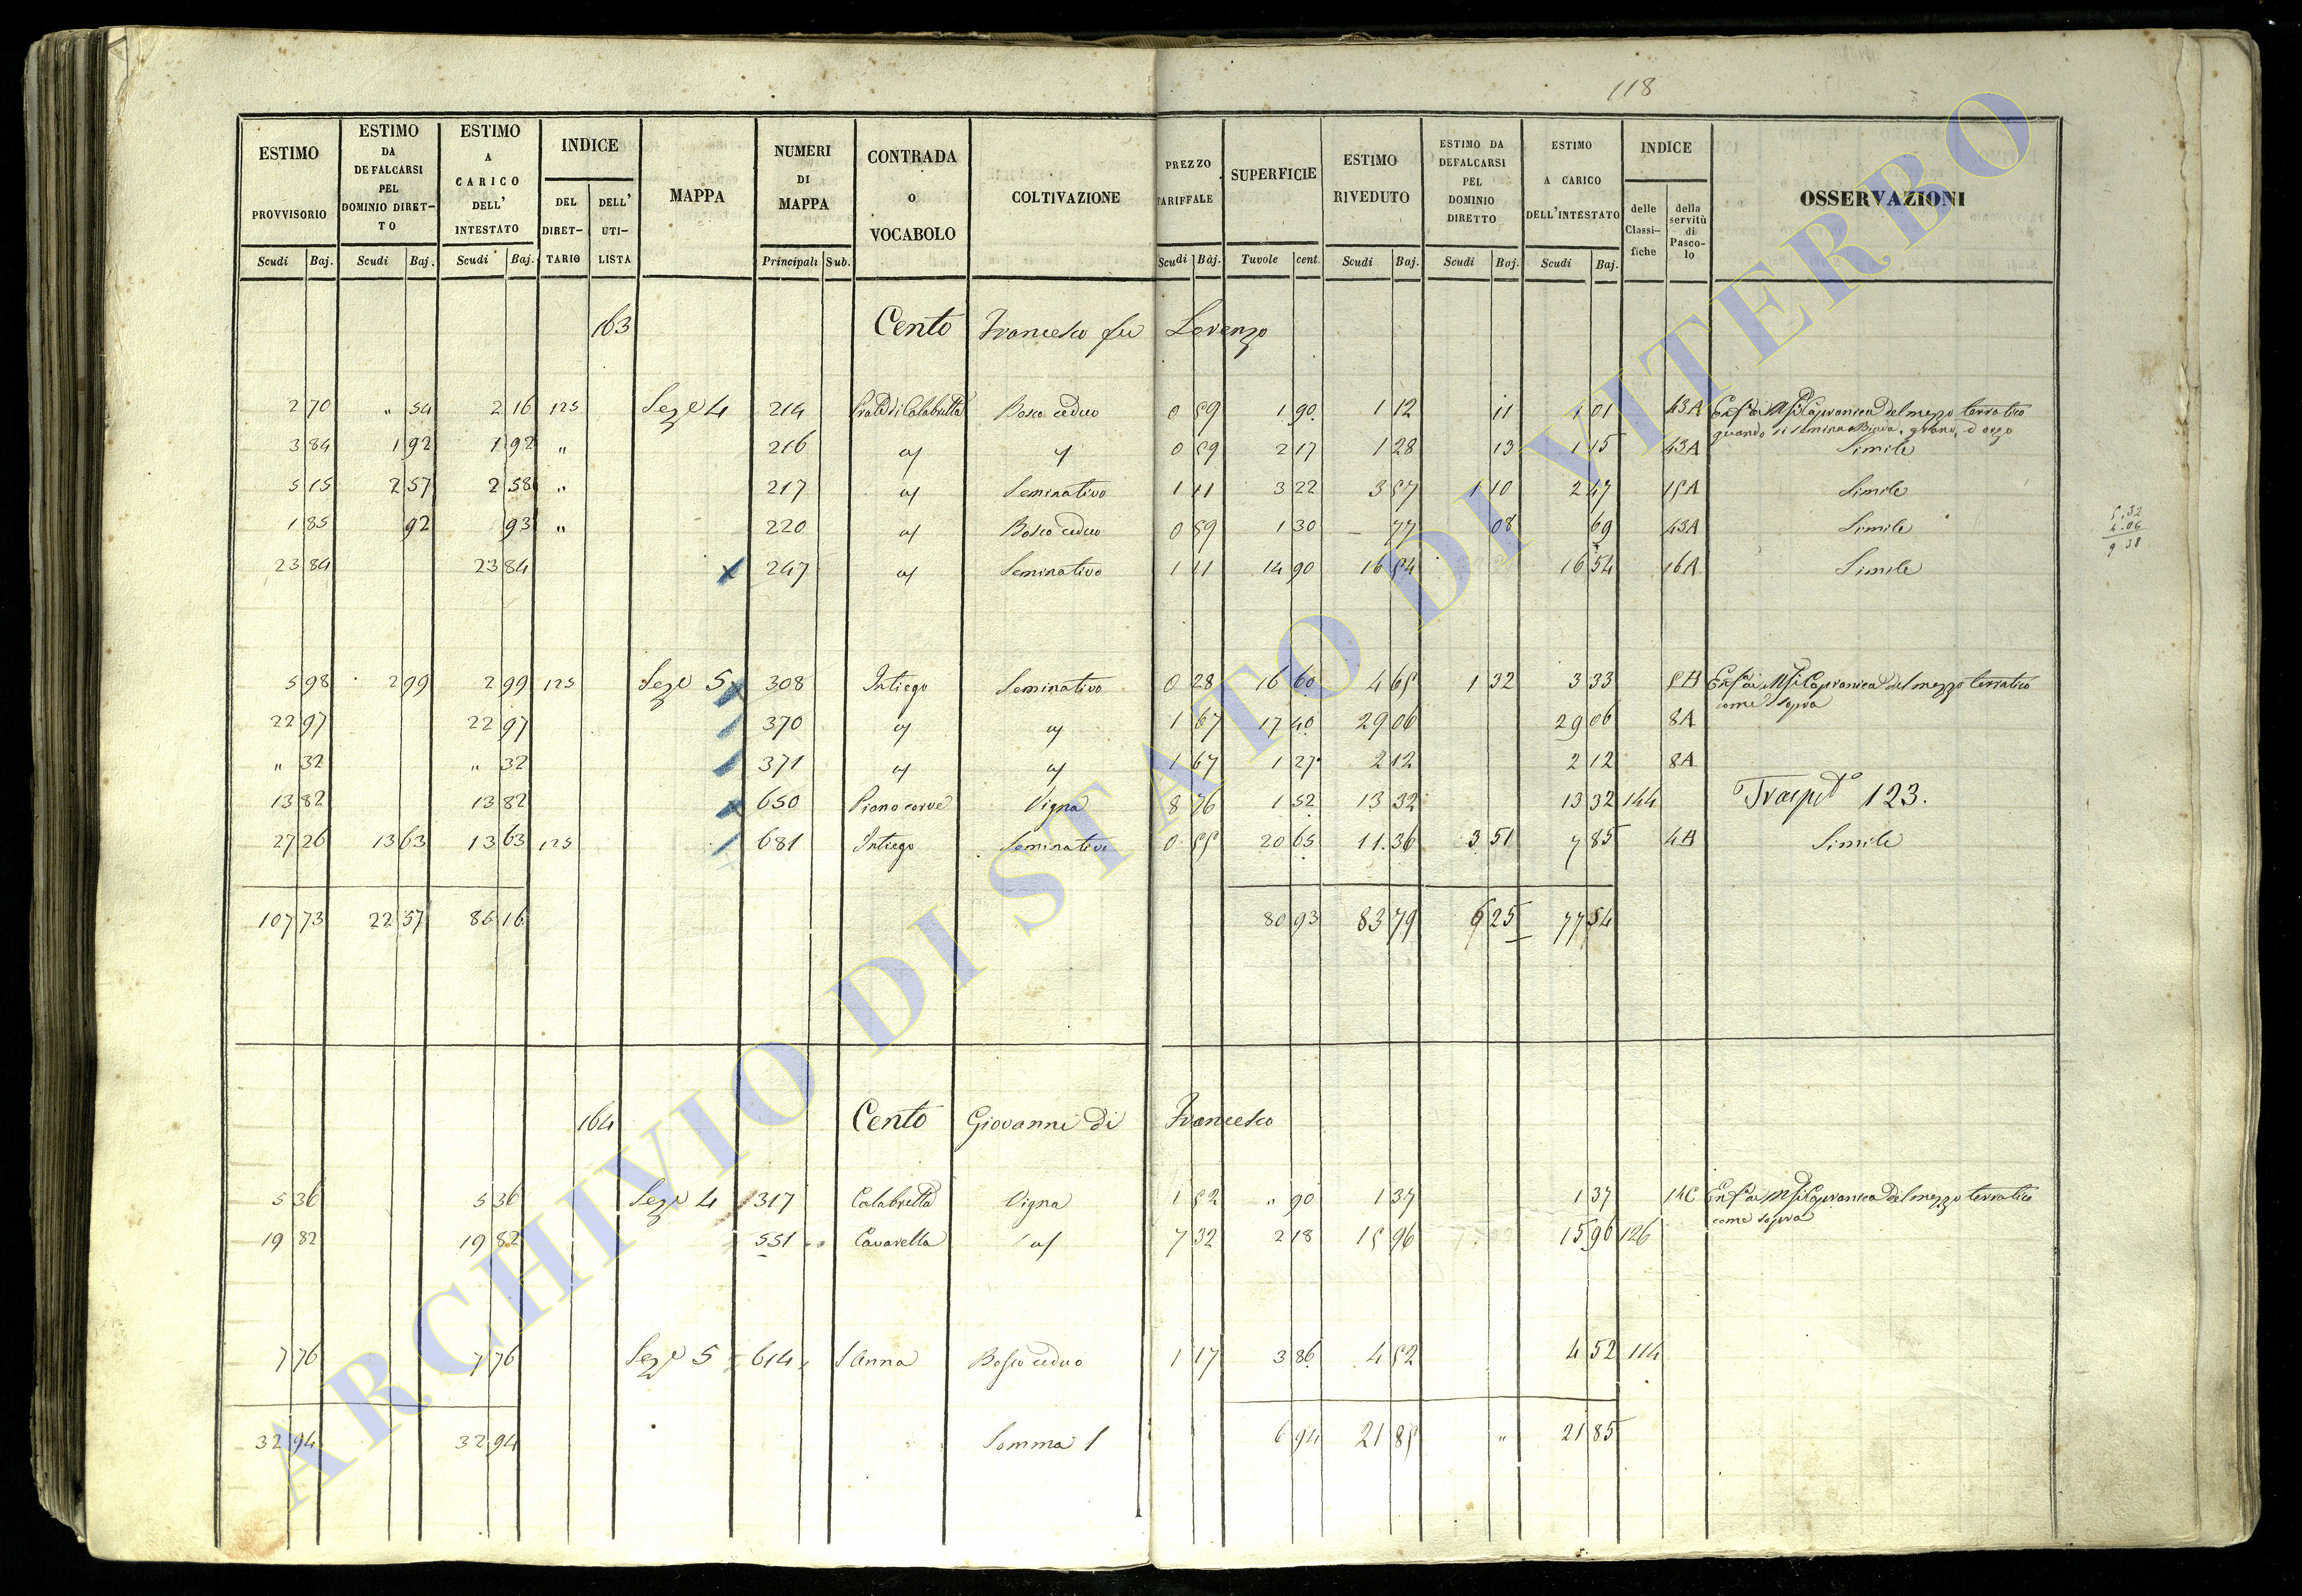 118
ESTIMO PROVVISORIO Scudi Baj. ESTIMO DA DEFALCARSI PEL DOMINIO DIRET-TO Scudi Baj. ESTIMO A CARICO DELL' INTESTATO Scudi Baj. INDICE DEL DIRET-TARIO DELL' UTI-LISTA MAPPA NUMERI DI MAPPA Principali Sub. CONTRADA o VOCABOLO COLTIVAZIONE PREZZO TARIFFALE Scudi Baj. SUPERFICIE Tavole cent. ESTIMO RIVEDUTO Scudi Baj. ESTIMO DA DEFALCARSI PEL DOMINIO DIRETTO Scudi Baj. ESTIMO A CARICO DELL'INTESTATO Scudi Baj. INDICE delle Classi-fiche della servitù di Pasco-lo OSSERVAZIONI
163 Cento Francesco fu Lorenzo
2 70 " 54 2 16 125 Seze 4 214 Prato di Calabretta Bosco ceduo 0 59 1 90 1 12 11 1 01 43A del mezzo terratico
quando si semina Biada, grano, o orzo
3 84 1 92 1 92 " 216 0 59 2 17 1 28 13 1 15 43A Simile
5 15 2 57 2 58 " 217 Seminativo 1 11 3 22 3 57 1 10 2 47 15A Simile
1 85 92 93 " 220 Bosco ceduo 0 59 1 30 77 08 69 43A Simile
23 84 23 84 247 Seminativo 1 11 14 90 16 54 16 54 16A Simile
5 98 2 99 2 99 125 Seze 5 308 Intiego Seminativo 0 28 16 60 4 65 1 32 3 33 5B del mezzo terratico
come sopra
22 97 22 97 370 1 67 17 40 29 06 29 06 8A
" 32 " 32 371 1 67 1 27 2 12 2 12 8A
13 82 13 82 650 Piano Vigna 8 76 1 52 13 32 13 32 144 123.
27 26 13 63 13 63 125 681 Intiego Seminativo 0 55 20 65 11.36 3 51 7 85 4B Simile
107 73 22 57 86 16 80 93 83 79 6 25 77 54
5.32
4.06
9.38
164 Cento Giovanni di Francesco
5 36 5 36 Seze 4 317 Calabretta Vigna 1 52 " 90 1 37 1 37 14C del mezzo terratico
come sopra
19 82 19 82 551 Cavarella 7 32 2 18 15 96 15 96 126
7 76 7 76 Seze 5 614 S Anna Bosco ceduo 1 17 3 86 4 52 4 52 114
32 94 32 94 Somma 1 6 94 21 85 " 21 85
ARCHIVIO DI STATO DI VITERBO